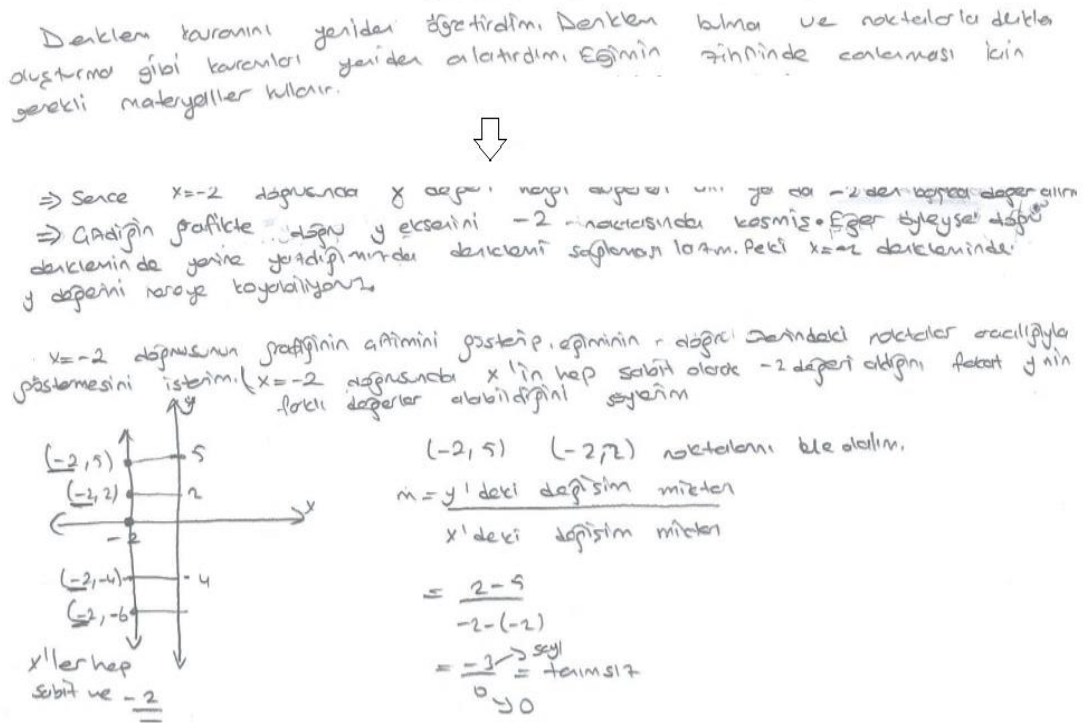 Denklem kavramını yeniden öğretirdim. Denklem bulma ve noktalarla denklem
oluşturma gibi kavramları yeniden anlatırdım. Eğimin zihninde canlanması için
gerekli materyaller kullanır.
⇒ Sence x=-2 doğrusunda y ya da -2 den başka değer alır
⇒ Çizdiğin grafikte doğru y eksenini -2 noktasında kesmiş. Eğer öyleyse doğru
denkleminde yerine yazdığımızda denklemi sağlaması lazım. Peki x=-2 denkleminde
y değerini nereye koyabiliyoruz.
x=-2 doğrusunun grafiğinin çizimini gösterip, eğiminin doğru üzerindeki noktalar aracılığıyla
göstermesini isterim. (x=-2 doğrusunda x'in hep sabit olarak -2 değeri aldığını fakat y nin
farklı değerler alabildiğini söylerim
y
(-2,5) 5
(-2,2) 2
x
-2
(-2,-4) -4
(-2,-6
x'ler hep
sabit ve -2
(-2,5) (-2,2) noktalarını ele alalım.
m = y'deki değişim miktarı
x'deki değişim miktarı
= 2-5
-2-(-2)
= -3 → sayı = tanımsız
0 → 0